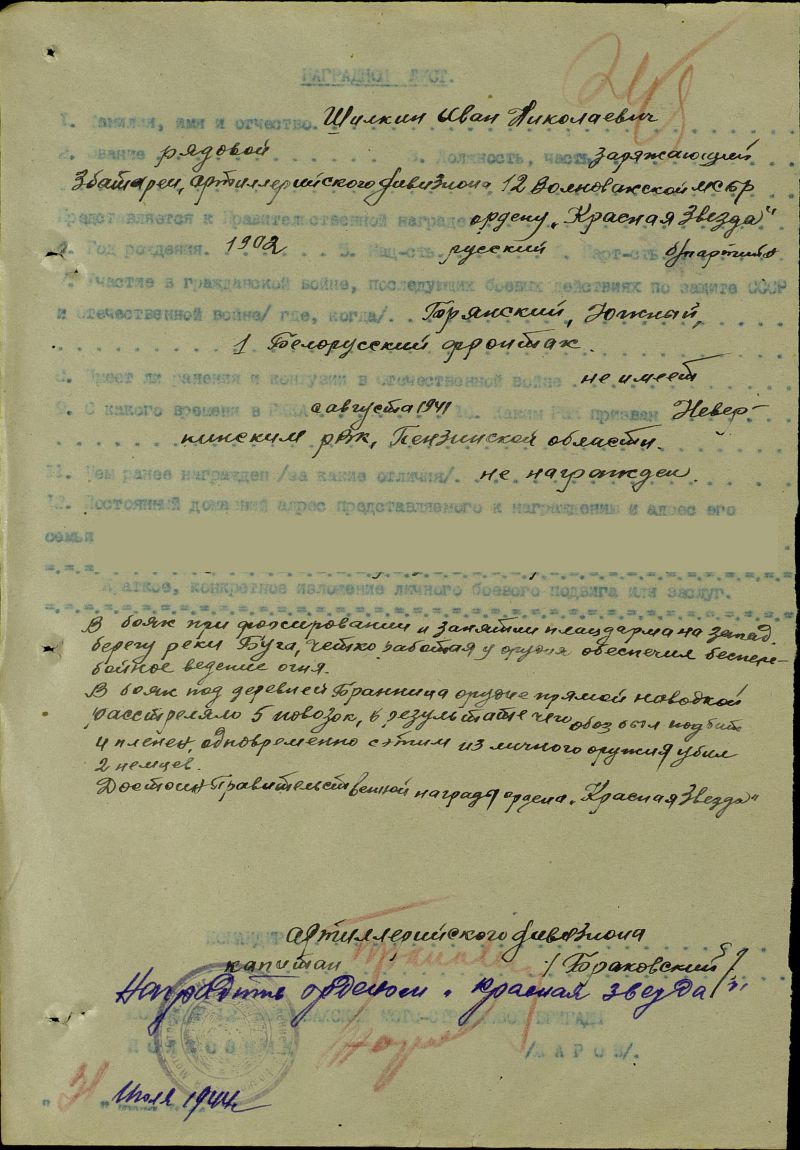 НАГРАДНОЙ ЛИСТ.
1. Фамилия, имя и отчество. Шилкин Иван Николаевич
2. Звание рядовой 3. Должность, часть заряжающий
3 батареи, артиллерийского дивизиона 12 Волновахской мсбр
Представляется к Правительственной награде ордену „Красная Звезда"
4. Год рождения. 1902 5. Нац-сть. русский 6. Парт-сть б/партийн
7. Участие в гражданской войне, последующих боевых действиях по защите СССР
и отечественной войне/ где, когда/. Брянский, Южный,
1 Белорусский фронтах.
8. Имеет ли ранения и контузии в отечественной войне не имеет
9. С какого времени в РККА с августа 1941 10. Каким РВК призван Невер-
кинским рвк, Пензинской области.
11. Чем ранее награжден /за какие отличия/. не награжден.
12. Постоянный домашний адрес представляемого к награждению и адрес его
семьи
Краткое, конкретное изложение личного боевого подвига или заслуг.
В боях при форсировании и занятии плацдарма на запад.
берегу реки Буга, четко работая у орудия обеспечил беспере-
бойное ведение огня.
В боях под деревней Гранница орудие прямой наводкой
расстреляло 5 повозок, в результате чего обоз был подбит
4 пленен, одновременно с этим из личного оружия убил
2 немцев.
Достоин Правительственной награды ордена „Красная Звезда"
КОМАНДИР артиллерийского дивизиона
капитан / Гораковский /
Наградить орденом „Красная звезда"
КОМАНДИР 12 ВОЛНОВАХСКОЙ МОТО-СТРЕЛКОВОЙ БРИГАДЫ
ПОЛКОВНИК /ЖАРОВ/.
„31" Июля 1944г